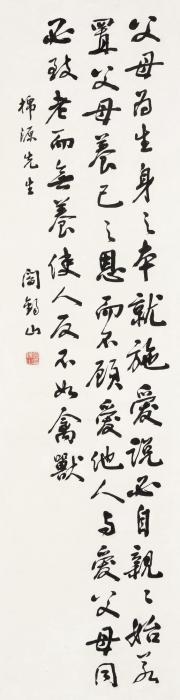 父母为生身之本就施爱说必自亲之始若
置父母养己之恩而不顾爱他人与爱父母同
必致老而无养使人反不如禽兽
棉源先生
阎锡山